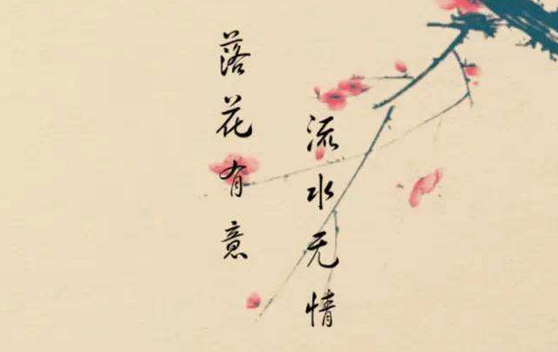 落花有意
流水无情